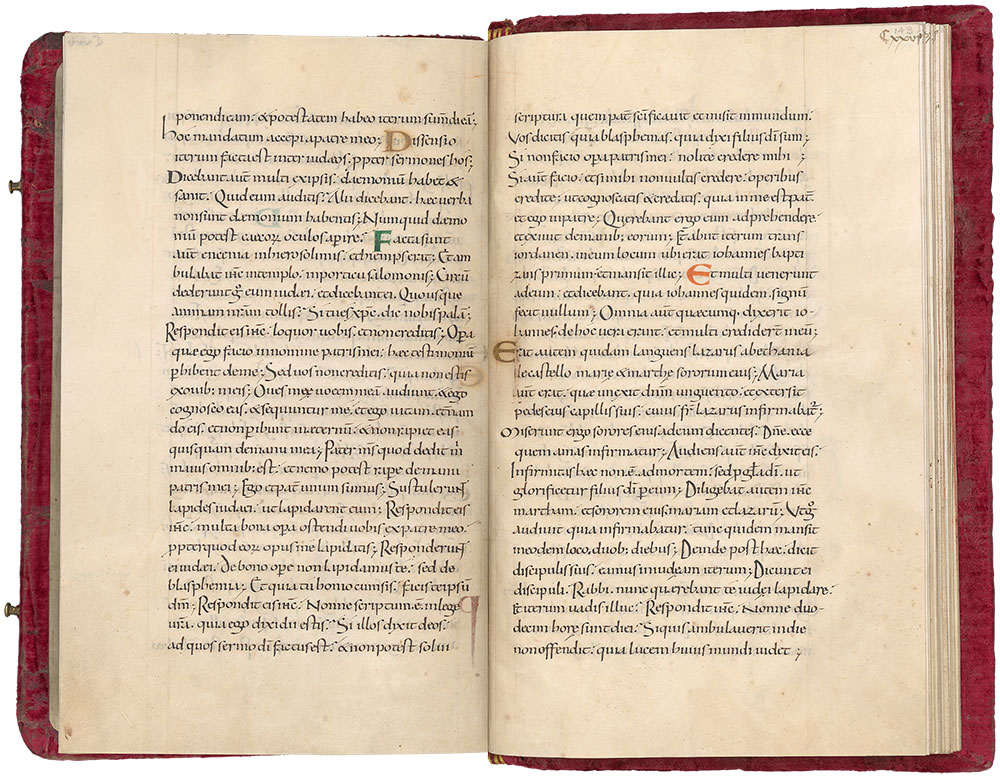 ponendi eam: & potestatem habeo iterum sumendi eā;
hoc mandatum accepi a patre meo; Dissensio
iterum facta est inter iudaeos: ppter sermones hos;
Dicebant aut̄ multi ex ipsis: daemoniū habet &
sanit: Quid eum auditis? Alii dicebant: haec verba
non sunt daemonium habentis; Numquid daemo
niū potest caecorʒ oculos apire? Facta sunt
aut̄ encenia in hierosolimis: et hiemps erat; Et am
bulabat ihc̄ in templo: in porticu salomonis; Circū
dederunt gͦ eum iudaei: et dicebant ei; Quousque
animam nr̄am tollis? Si tu es xpc̄: dic nobis palā;
Respondit eis ihc̄: loquor uobis: et non creditis; Opa
que ego facio in nomine patris mei: haec testimoniū
phibent de me; Sed uos non creditis: quia non estis
ex ouib; meis; Oues meę uocem meā audiunt: & ego
cognosco eas: & sequuntur me: et ego uitam et̄nam
do eis: et non pibunt in aeternū: & non rapiet eas
quisquam de manu mea; Pater ms̄ quod dedit m̄
maius omnib; est: et nemo potest rape de manu
patris mei; Ego et pat̄ unum sumus; Sustulerunt
lapides iudaei: ut lapidarent eum; Respondit eis
ihc̄: multa bona opa ostendi uobis ex patre meo:
ppter quod eorʒ opus me lapidatis; Responderunt
ei iudaei: de bono ope non lapidamus te: sed de
blasphemia; Et quia tu homo cum sis: facis te ipsū
dm̄; Respondit eis ihc̄: Nonne scriptum ē in lege
ur̄a: quia ego dixi dii estis? Si illos dixit deos:
ad quos sermo di̅ factus est: & non potest solui
Cxxvi
143
scriptura: quem pat̄ sc̄ificauit et misit in mundum:
Vos dicitis quia blasphemas: quia dyxi filius di̅ sum;
Si non facio opa patris mei: nolite credere mihi;
Si aut̄ facio: etsi mihi non uultis credere: operibus
credite: ut cognoscatis & credatis: quia in me est pat̄:
et ego in patre; Querebant ergo eum adprehendere:
et exiuit de manib; eorum; Et abiit iterum trans
iordanen: in eum locum ubi erat iohannes bapti
zans primum: et mansit illic; Et multi venerunt
ad eum: et dicebant: quia iohannes quidem signū
fecit nullum; Omnia aut̄ quaecumq; dyxerit io-
hannes de hoc vera erant: et multi credidert̄ in eū;
Erat autem quidam languens lazarus a bethania
de castello marię & marthe sororum eius; Maria
aut̄ erat: que unexit dn̄m unguento: et extersit
pedes eius capillis suis: cuius fr̄ lazarus infirmabat̄;
Miserunt ergo sorores eius ad eum dicentes: Dn̄e: ecce
quem amas infirmatur; Audiens aut̄ ihc̄ dyxit eis:
Infirmitas haec non ē ad mortem: sed p gl̄a di̅: ut
glorificetur filius di̅ p eum; Diligebat autem ihc̄
martham: et sororem eius mariam et lazarū; Vt gͦ
audiuit quia infirmabatur: tunc quidem mansit
in eodem loco duob; diebus; Deinde post haec: dicit
discipulis suis: eamus in iudeam iterum; Dicunt ei
discipuli: Rabbi: nunc quaerebant te iudei lapidare:
Et iterum uadis illuc? Respondit ihc̄: Nonne duo-
decim horę sunt diei? Si quis ambulauerit in die
non offendit: quia lucem huius mundi uidet;